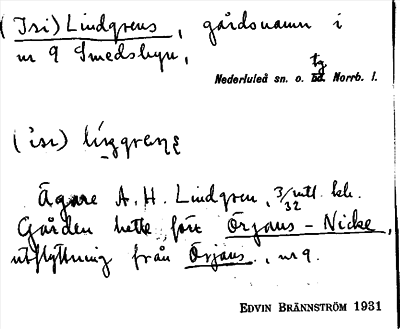 (Isi) Lindgrens, gårdsnamn i
nr 9 Smedsbyn,
tg
Nederluleå sn. o. hd. Norrb. l.
Ägare A. H. Lindgren, 3/32 mtl. kr.
Gården hette förr Örjans-Nicke,
utflyttning från Örjans, nr 9.
EDVIN BRÄNNSTRÖM 1931